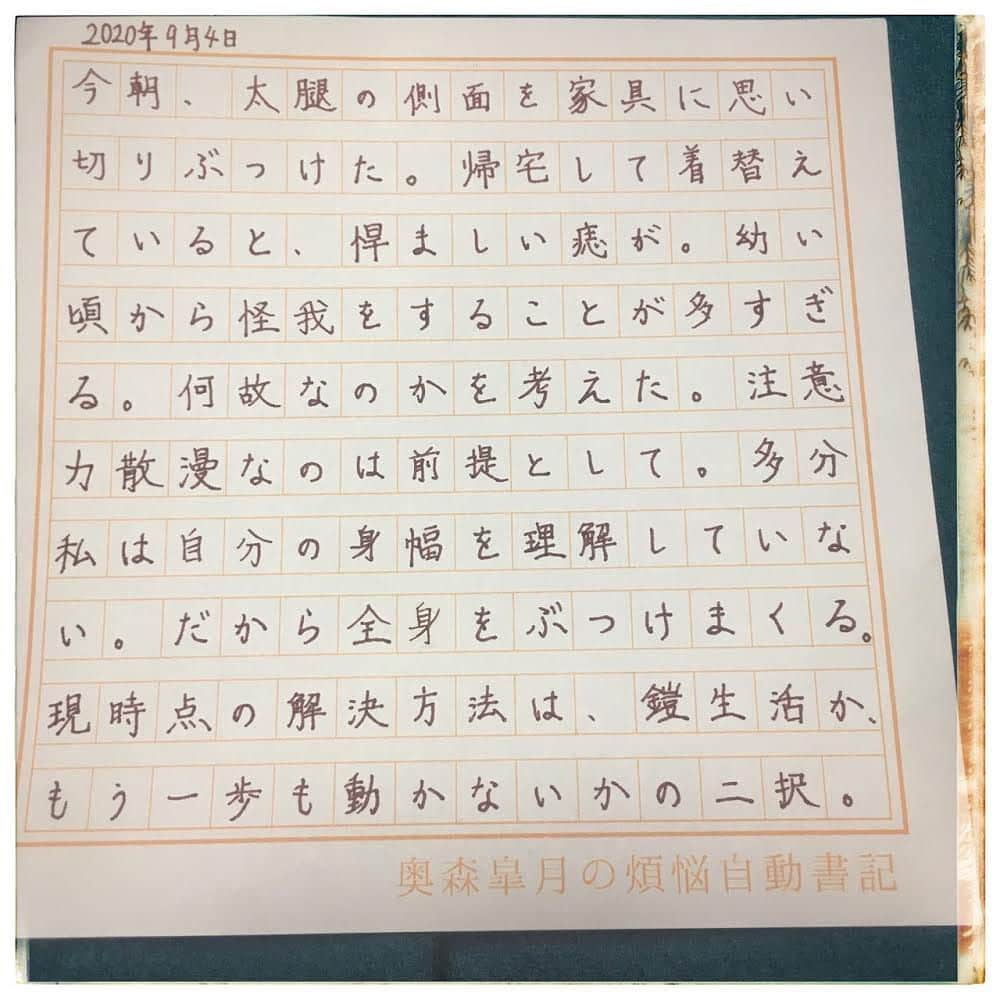 2020年9月4日
今朝、太腿の側面を家具に思い
切りぶつけた。帰宅して着替え
ていると、悍ましい痣が。幼い
頃から怪我をすることが多すぎ
る。何故なのかを考えた。注意
力散漫なのは前提として。多分
私は自分の身幅を理解していな
い。だから全身をぶつけまくる。
現時点の解決方法は、鎧生活か、
もう一歩も動かないかの二択。
奥森皐月の煩悩自動書記